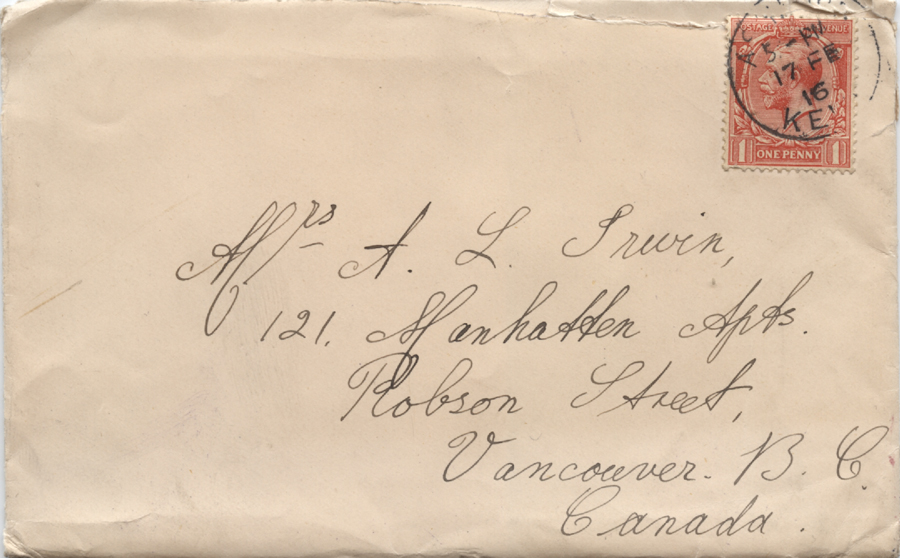 POSTAGE REVENUE
5 - PM
17 FE
16
KE
1 ONE PENNY 1
Mrs A. L. Irwin,
121. Manhatten Apts.
Robson Street,
Vancouver. B. C.
Canada.